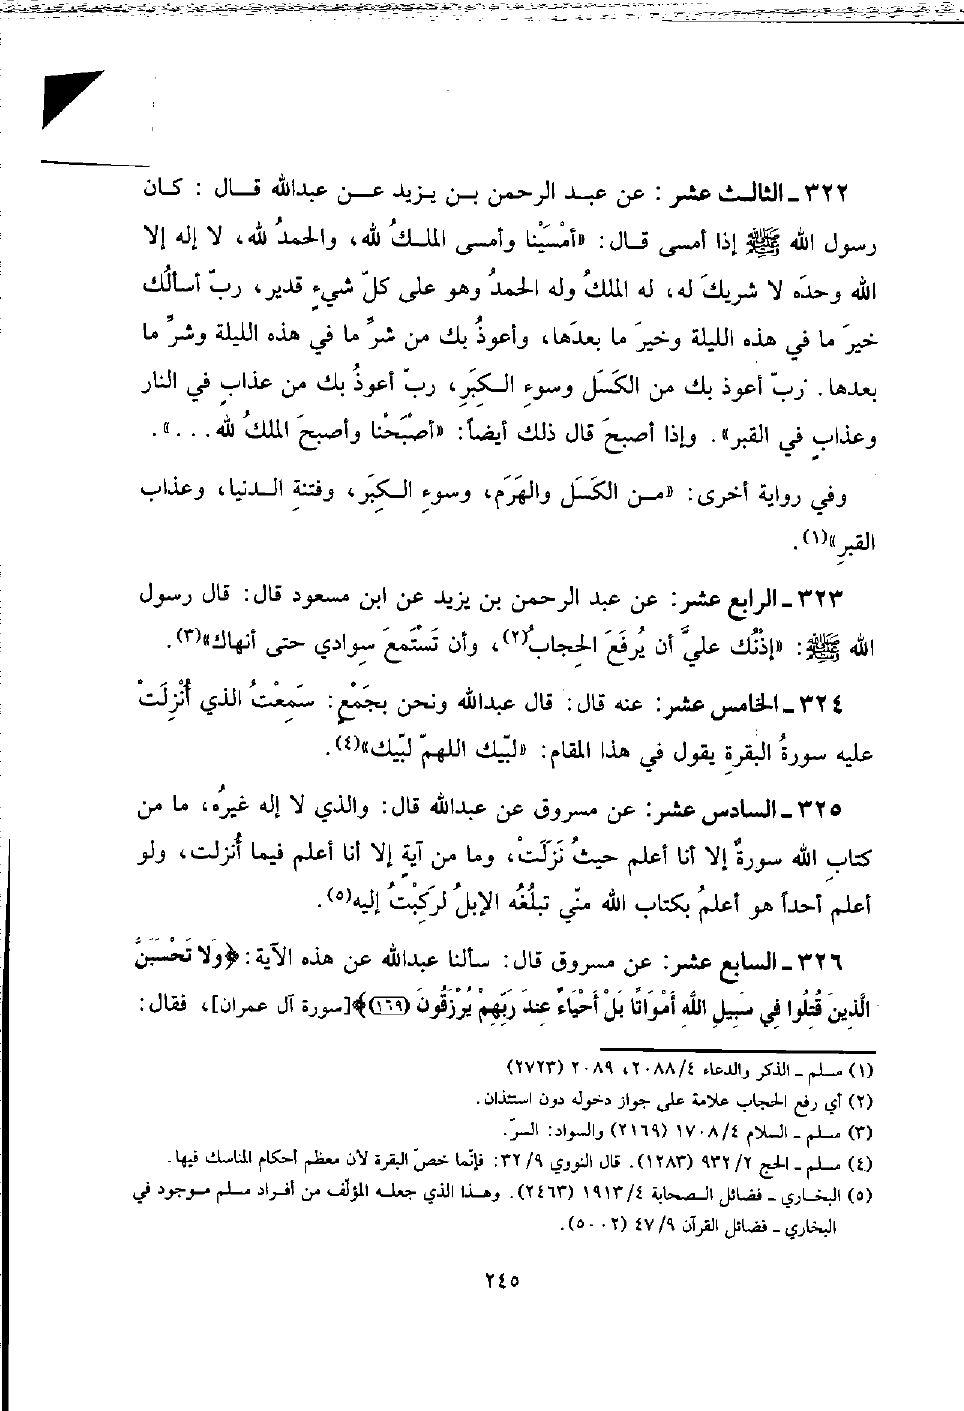 ٣٢٢ ـ الثالث عشر : عن عبد الرحمن بن يزيد عن عبدالله قال : كان
رسول الله ﷺ إذا أمسى قال: «أمْسَيْنا وأمسى الملكُ لله، والحمدُ لله، لا إله إلا
الله وحدَه لا شريكَ له، له الملكُ وله الحمدُ وهو على كلّ شيءٍ قدير، ربّ أسألُك
خيرَ ما في هذه الليلة وخيرَ ما بعدَها، وأعوذُ بك من شرِّ ما في هذه الليلة وشرِّ ما
بعدها. ربّ أعوذ بك من الكَسَل وسوءِ الكِبَرِ، ربّ أعوذُ بك من عذابٍ في النار
وعذابٍ في القبر». وإذا أصبحَ قال ذلك أيضاً: «أصْبَحْنا وأصبحَ الملكُ لله...».
وفي رواية أخرى: «من الكَسَل والهَرَم، وسوءِ الكِبَرِ، وفتنةِ الدنيا، وعذاب
القبرِ»(١).
٣٢٣ ـ الرابع عشر: عن عبد الرحمن بن يزيد عن ابن مسعود قال: قال رسول
الله ﷺ: «إذْنُك عليَّ أن يُرفَعَ الحجابُ(٢)، وأن تَسْتَمعَ سِوادي حتى أنهاك»(٣).
٣٢٤ ـ الخامس عشر: عنه قال: قال عبدالله ونحن بجَمْعٍ: سَمِعْتُ الذي أُنْزِلَتْ
عليه سورةُ البقرةِ يقول في هذا المقام: «لبّيك اللهمّ لبّيك»(٤).
٣٢٥ ـ السادس عشر: عن مسروق عن عبدالله قال: والذي لا إله غيرُه، ما من
كتابِ الله سورةٌ إلا أنا أعلم حيثُ نَزَلَتْ، وما من آيةٍ إلا أنا أعلم فيما أُنزلت، ولو
أعلم أحداً هو أعلمُ بكتاب الله منّي تبلُغُه الإبلُ لرَكِبْتُ إليه(٥).
٣٢٦ ـ السابع عشر: عن مسروق قال: سألنا عبدالله عن هذه الآية: ﴿وَلا تَحْسَبَنَّ
الَّذِينَ قُتِلُوا فِي سَبِيلِ اللَّهِ أَمْوَاتًا بَلْ أَحْيَاءٌ عِندَ رَبِّهِمْ يُرْزَقُونَ (١٦٩)﴾[سورة آل عمران]، فقال:
(١) مسلم ـ الذكر والدعاء ٢٠٨٨/٤، ٢٠٨٩ (٢٧٢٣)
(٢) أي رفع الحجاب علامة على جواز دخوله دون استئذان.
(٣) مسلم ـ السلام ١٧٠٨/٤ (٢١٦٩) والسواد: السرّ.
(٤) مسلم ـ الحج ٩٣٢/٢ (١٢٨٣). قال النووي ٣٢/٩: فإنّما خصّ البقرة لأن معظم أحكام المناسك فيها.
(٥) البخاري ـ فضائل الصحابة ١٩١٣/٤ (٢٤٦٣). وهذا الذي جعله المؤلّف من أفراد مسلم موجود في
البخاري ـ فضائل القرآن ٤٧/٩ (٥٠٠٢).
٢٤٥